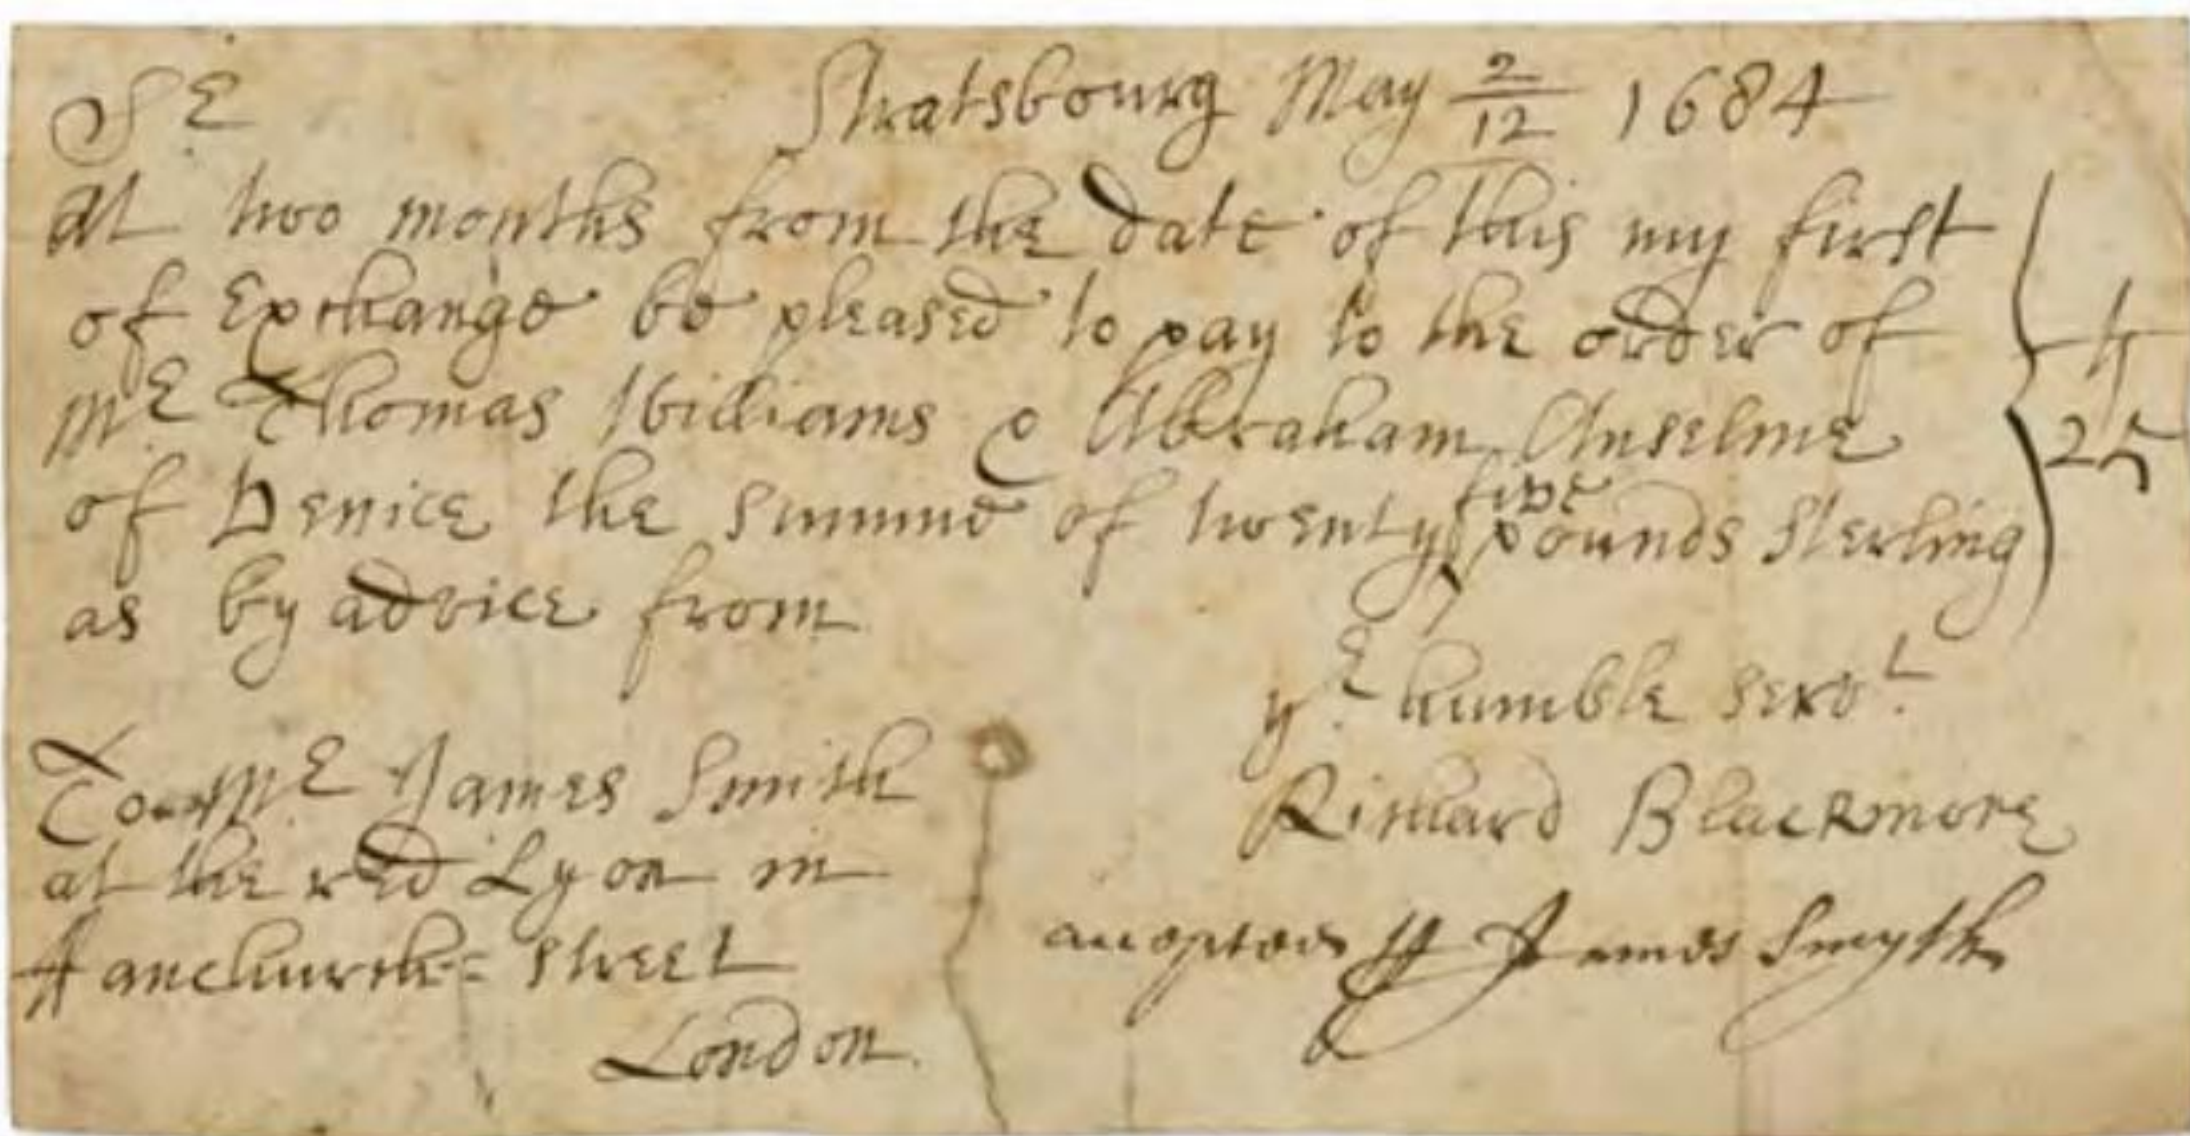 Sr Stratsbourg May 2/12 1684
At two months from the date of this my first
of Exchange be pleased to pay to the order of
Mr Thomas Williams & Abraham Anselme
of Venice the summe of twenty five pounds sterling
as by advice from
lb
25
yr humble servt.
Richard Blackmore
To Mr James Smith
at the red Lyon in
ffanchurch= street
London.
accepted James Smyth